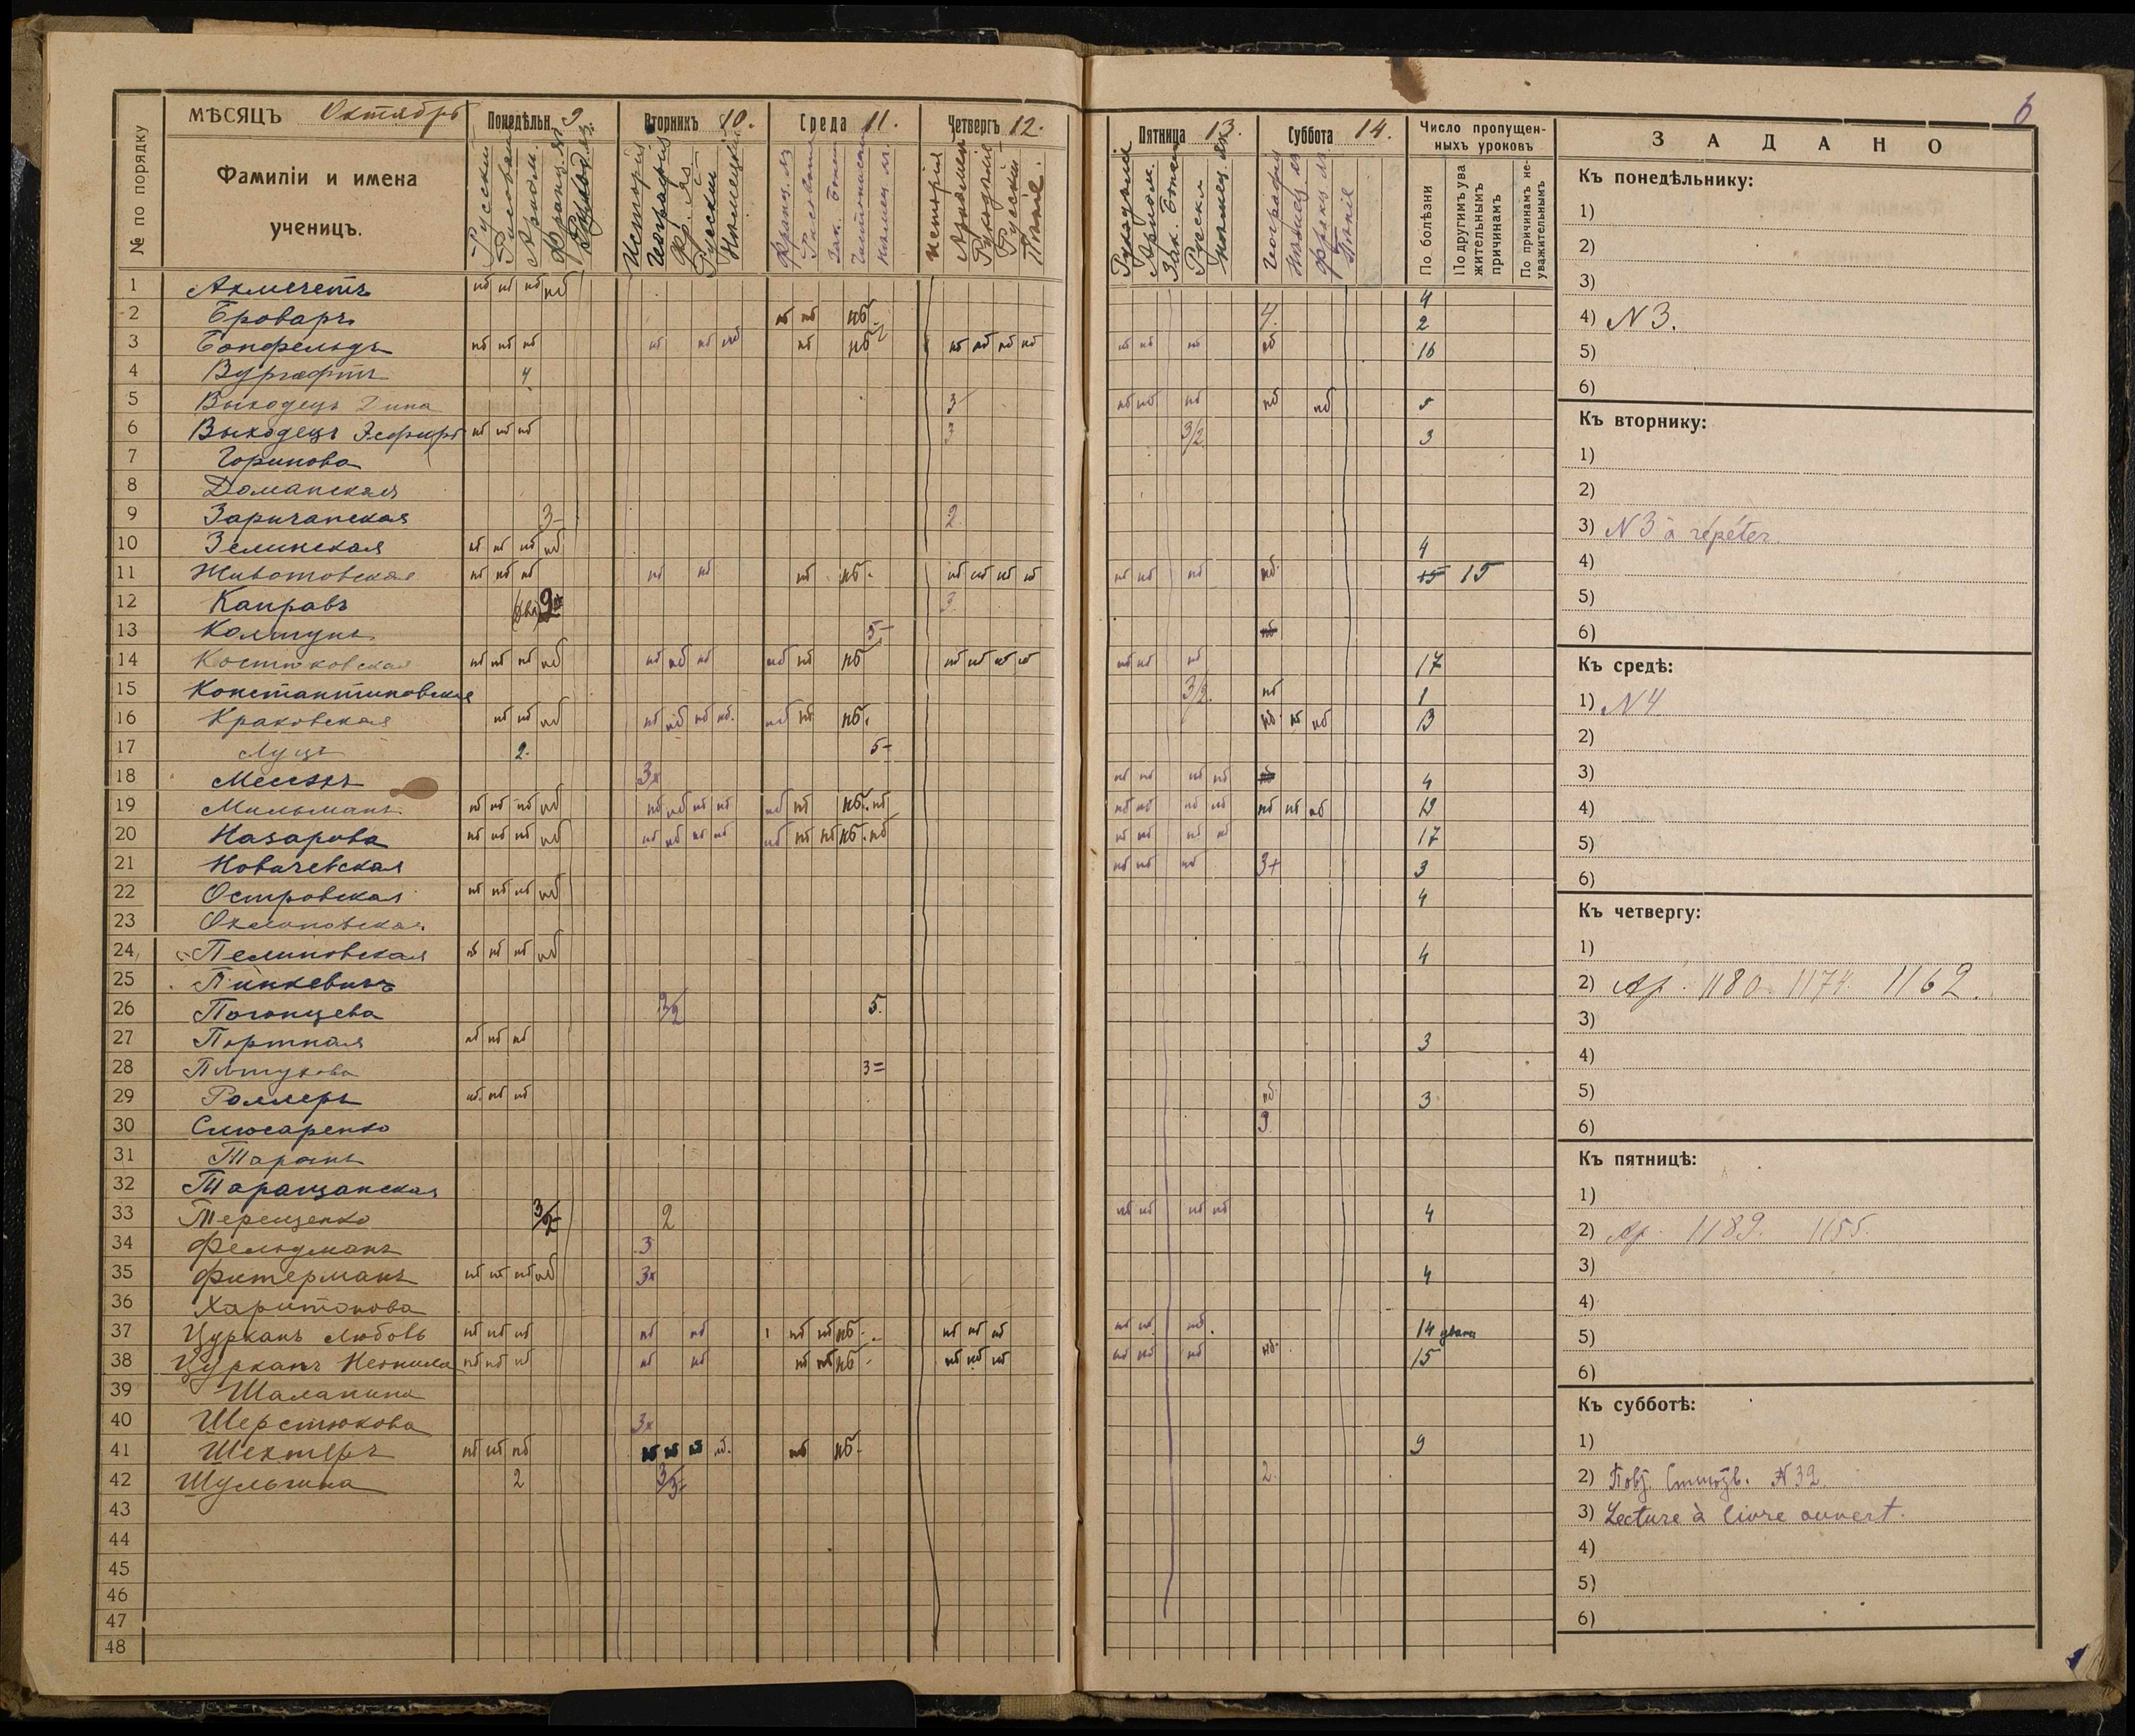 6
МѢСЯЦЪ Октябрь
№ по порядку
Фамиліи и имена ученицъ.
Понедѣльн. 9.
Вторникъ 10.
Среда 11.
Четвергъ 12.
Пятница 13.
Суббота 14.
Число пропущенныхъ уроковъ
По болѣзни
По другимъ уважительнымъ причинамъ
По причинамъ неуважительнымъ
Русскій
Рисованіе
Ариѳм.
Франц. яз.
Исторія
Географія
Фр. яз.
Русскій
Нѣмецкій
Франц. яз
Рисованіе
Зак. Божій
Чистописаніе
Нѣмец. яз.
Исторія
Рукодѣліе
Русскій
Пѣніе.
Рукодѣліе
Ариѳм.
Зак. Божій
Русск.
Нѣмец. яз.
Географія
Нѣмец. яз
Франц. яз
Пѣніе
1 Ахмечетъ нб нб нб нб 4
2 Броваръ нб нб нб 4. 2
3 Бонфельдъ нб нб нб нб нб нб нб нб нб нб нб нб нб нб нб нб 16
4 Вургафтъ 4
5 Выходецъ Дина 3 нб нб нб нб нб 5
6 Выходецъ Эсфирь нб нб нб 3 3/2 3
7 Горинова
8 Доманская
9 Заричанская 3- 2
10 Зелинская нб нб нб нб 4
11 Животовская нб нб нб нб нб нб нб нб нб нб нб нб нб нб нб 15 15
12 Каправъ 3
13 Колтунъ 5- нб
14 Костюковская нб нб нб нб нб нб нб нб нб нб нб нб нб нб нб нб нб 17
15 Константиновская 3/2. нб 1
16 Краковская нб нб нб нб нб нб нб. нб нб нб. нб нб нб 13
17 Луцъ 2. 5-
18 Мессэкъ 3х нб нб нб нб нб 4
19 Мильманъ нб нб нб нб нб нб нб нб нб нб нб. нб нб нб нб нб нб нб нб 19
20 Назарова нб нб нб нб нб нб нб нб нб нб нб нб. нб нб нб нб нб 17
21 Новачевская нб нб нб 3+ 3
22 Островская нб нб нб нб 4
23
24 Пелиновская нб нб нб нб 4
25 Пинкевичъ
26 Погонцева 3/2 5.
27 Портная нб нб нб 3
28 Пятукова 3=
29 Роллеръ нб. нб нб нб 3
30 Слюсаренко 3
31 Таранъ
32 Таращанская
33 Терещенко 3/2 2 нб нб нб нб 4
34 Фельдманъ 3
35 Фитерманъ нб нб нб нб 3х 4
36 Харитонова
37 Цурканъ Любовь нб нб нб нб нб нб нб нб нб нб нб нб нб нб. 14
38 Цурканъ Неонила нб нб нб нб нб нб нб нб нб нб нб нб нб нб нб. 15
39 Шаланина
40 Шерстюкова 3х
41 Шехтеръ нб нб нб нб нб нб нб. нб нб 9
42 Шульгина 2 3/3- 2.
43
44
45
46
47
48
ЗАДАНО
Къ понедѣльнику:
1)
2)
3)
4) N 3.
5)
6)
Къ вторнику:
1)
2)
3) N 3 à répéter.
4)
5)
6)
Къ средѣ:
1) N 4.
2)
3)
4)
5)
6)
Къ четвергу:
1)
2) Ар. 1180. 1174. 1162.
3)
4)
5)
6)
Къ пятницѣ:
1)
2) Ар. 1189. 1155.
3)
4)
5)
6)
Къ субботѣ:
1)
2) N 32.
3) Lecture à livre ouvert.
4)
5)
6)